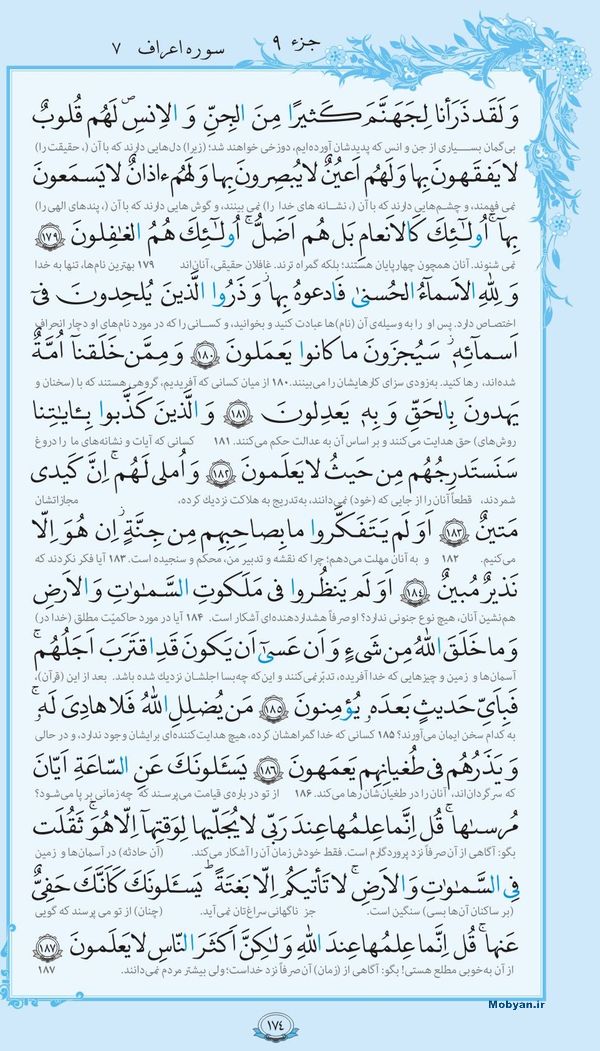 جزء ۹ سوره اعراف ۷
وَ لَقَد ذَرَأنا لِجَهَنَّمَ كَثيرًا مِنَ الجِنِّ وَ الاِنسِ ۖ لَهُم قُلوبٌ
بی‌گمان بسیاری از جن و انس که پدیدشان آورده‌ایم، دوزخی خواهند شد؛ (زیرا) دل‌هایی دارند که با آن (، حقیقت را)
لا يَفقَهونَ بِها وَ لَهُم اَعيُنٌ لا يُبصِرونَ بِها وَ لَهُم ءاذانٌ لا يَسمَعونَ
نمی فهمند، و چشم‌هایی دارند که با آن (، نشانه های خدا را) نمی بینند، و گوش هایی دارند که با آن (، پندهای الهی را)
بِها ۚ اُولٰـئِكَ كَالاَنعامِ بَل هُم اَضَلُّ ۚ اُولٰـئِكَ هُمُ الغـٰفِلونَ ﴿۱۷۹﴾
نمی شنوند. آنان همچون چهارپایان هستند؛ بلکه گمراه ترند. غافلان حقیقی، آنان‌اند ۱۷۹ بهترین نام‌ها، تنها به خدا
وَ لِلّٰهِ الاَسماءُ الحُسنىٰ فَادعوهُ بِها ۖ وَ ذَرُوا الَّذينَ يُلحِدونَ فى
اختصاص دارد. پس او را به وسیله‌ی آن (نام)ها عبادت کنید و بخوانید، و کسانی را که در مورد نام‌های او دچار انحراف
اَسمائِه ۚ سَيُجزَونَ ما كانوا يَعمَلونَ ﴿۱۸۰﴾ وَ مِمَّن خَلَقنا اُمَّةٌ
شده‌اند، رها کنید. به‌زودی سزای کارهایشان را می‌بینند. ۱۸۰ از میان کسانی که آفریدیم، گروهی هستند که با (سخنان و
يَهدونَ بِالحَقِّ وَ بِه يَعدِلونَ ﴿۱۸۱﴾ وَ الَّذينَ كَذَّبوا بِـٔايـٰتِنا
روش‌های) حق هدایت می‌کنند و بر اساس آن به عدالت حکم می‌کنند. ۱۸۱ کسانی که آیات و نشانه‌های ما را دروغ
سَنَستَدرِجُهُم مِن حَيثُ لا يَعلَمونَ ﴿۱۸۲﴾ وَ اُملى لَهُم ۚ اِنَّ كَيدى
شمردند، قطعاً آنان را از جایی که (خود) نمی‌دانند، به‌تدریج به هلاکت نزدیك کرده، مجازاتشان
مَتينٌ ﴿۱۸۳﴾ اَوَ لَم يَتَفَكَّروا ۗ ما بِصاحِبِهِم مِن جِنَّةٍ ۚ اِن هُوَ اِلّا
می‌کنیم. ۱۸۲ و به آنان مهلت می‌دهم؛ چرا که نقشه و تدبیر من، محکم و سنجیده است. ۱۸۳ آیا فکر نکردند که
نَذيرٌ مُبينٌ ﴿۱۸۴﴾ اَوَ لَم يَنظُروا فى مَلَكوتِ السَّمـٰوٰتِ وَ الاَرضِ
هم‌نشین آنان، هیچ نوع جنونی ندارد؟ او صرفاً هشداردهنده‌ای آشکار است. ۱۸۴ آیا در مورد حاکمیّت مطلق (خدا) در)
وَ ما خَلَقَ اللّٰهُ مِن شَىءٍ وَ اَن عَسىٰ اَن يَكونَ قَدِ اقتَرَبَ اَجَلُهُم ۖ
آسمان‌ها و زمین و چیزهایی که خدا آفریده، تدبّر نمی‌کنند و این‌که چه‌بسا اجلشان نزدیك شده باشد. بعد از این (قرآن)،
فَبِاَىِّ حَديثٍ بَعدَه يُؤمِنونَ ﴿۱۸۵﴾ مَن يُضلِلِ اللّٰهُ فَلا هادِىَ لَه ۚ
به کدام سخن ایمان می‌آورند؟ ۱۸۵ کسانی که خدا گمراهشان کرده، هیچ هدایت‌کننده‌ای برایشان وجود ندارد، و در حالی
وَ يَذَرُهُم فى طُغيانِهِم يَعمَهونَ ﴿۱۸۶﴾ يَسـَٔلونَكَ عَنِ السّاعَةِ اَيّانَ
که سرگردان‌اند، آنان را در طغیان‌شان رها می‌کند. ۱۸۶ از تو در باره‌ی قیامت می‌پرسند که چه‌زمانی بر پا می‌شود؟
مُرسـٰها ۖ قُل اِنَّما عِلمُها عِندَ رَبّى ۖ لا يُجَلّيها لِوَقتِها اِلّا هُوَ ۚ ثَقُلَت
بگو: آگاهی از آن صرفاً نزد پروردگارم است. فقط خودش زمان آن را آشکار می‌کند. (آن حادثه) در آسمان‌ها و زمین
فِى السَّمـٰوٰتِ وَ الاَرضِ ۚ لا تَأتيكُم اِلّا بَغتَةً ۗ يَسـَٔلونَكَ كَاَنَّكَ حَفِىٌّ
(بر ساکنان آن‌ها بسی) سنگین است. جز ناگهانی سراغ‌تان نمی‌آید. (چنان) از تو می پرسند که گویی
عَنها ۖ قُل اِنَّما عِلمُها عِندَ اللّٰهِ وَ لٰـكِنَّ اَكثَرَ النّاسِ لا يَعلَمونَ ﴿۱۸۷﴾
از آن به‌خوبی مطلع هستی! بگو: آگاهی از (زمان) آن صرفاً نزد خداست؛ ولی بیشتر مردم نمی‌دانند. ۱۸۷
Mobyan.ir
۱۷۴